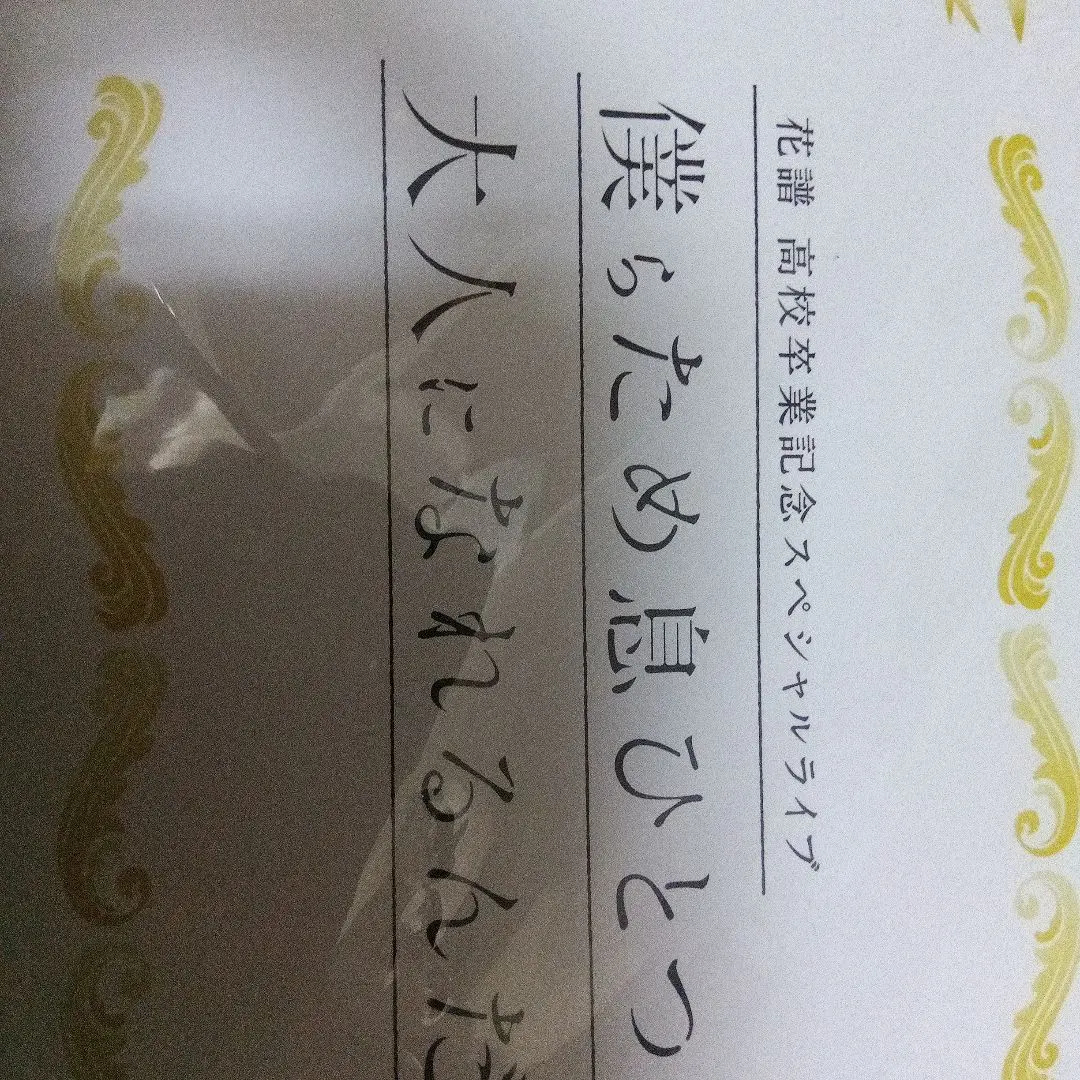 花譜 高校卒業記念スペシャルライブ
僕らため息ひとつ
大人になれるんだ